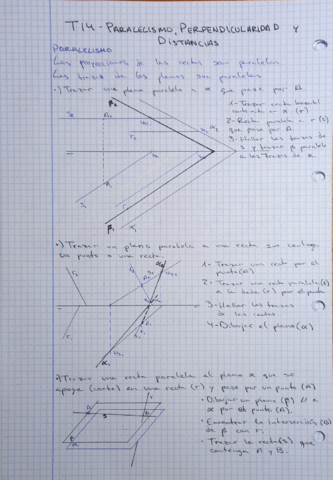 T14 - PARALELISMO, PERPENDICULARIDAD Y
DISTANCIAS
PARALELISMO
Las proyecciones de las rectas son paralelas
Las trazas de los planos son paralelas
·) Trazar un plano paralelo a α que pase por A.
1- Trazar recta horizontal
contenida en α (r)
2- Recta paralela a r (s)
que pase por A.
3- Hallar las trazas de
s y trazar β paralelo
a las trazas de α
·) Trazar un plano paralelo a una recta que contenga
un punto a una recta.
1- Trazar una recta por el
punto (A)
2- Trazar una recta paralela(s)
a la dada (r) por el punto
3- Hallar las trazas
de las rectas.
4- Dibujar el plano (α)
·) Trazar una recta paralela al plano α que se
apoye (corte) en una recta (r) y pase por un punto (A)
· Dibujar un plano (β) // a
α por el punto (A).
· Encontrar la intersección (B)
de β con r.
· Trazar la recta (s) que
contenga A y B.